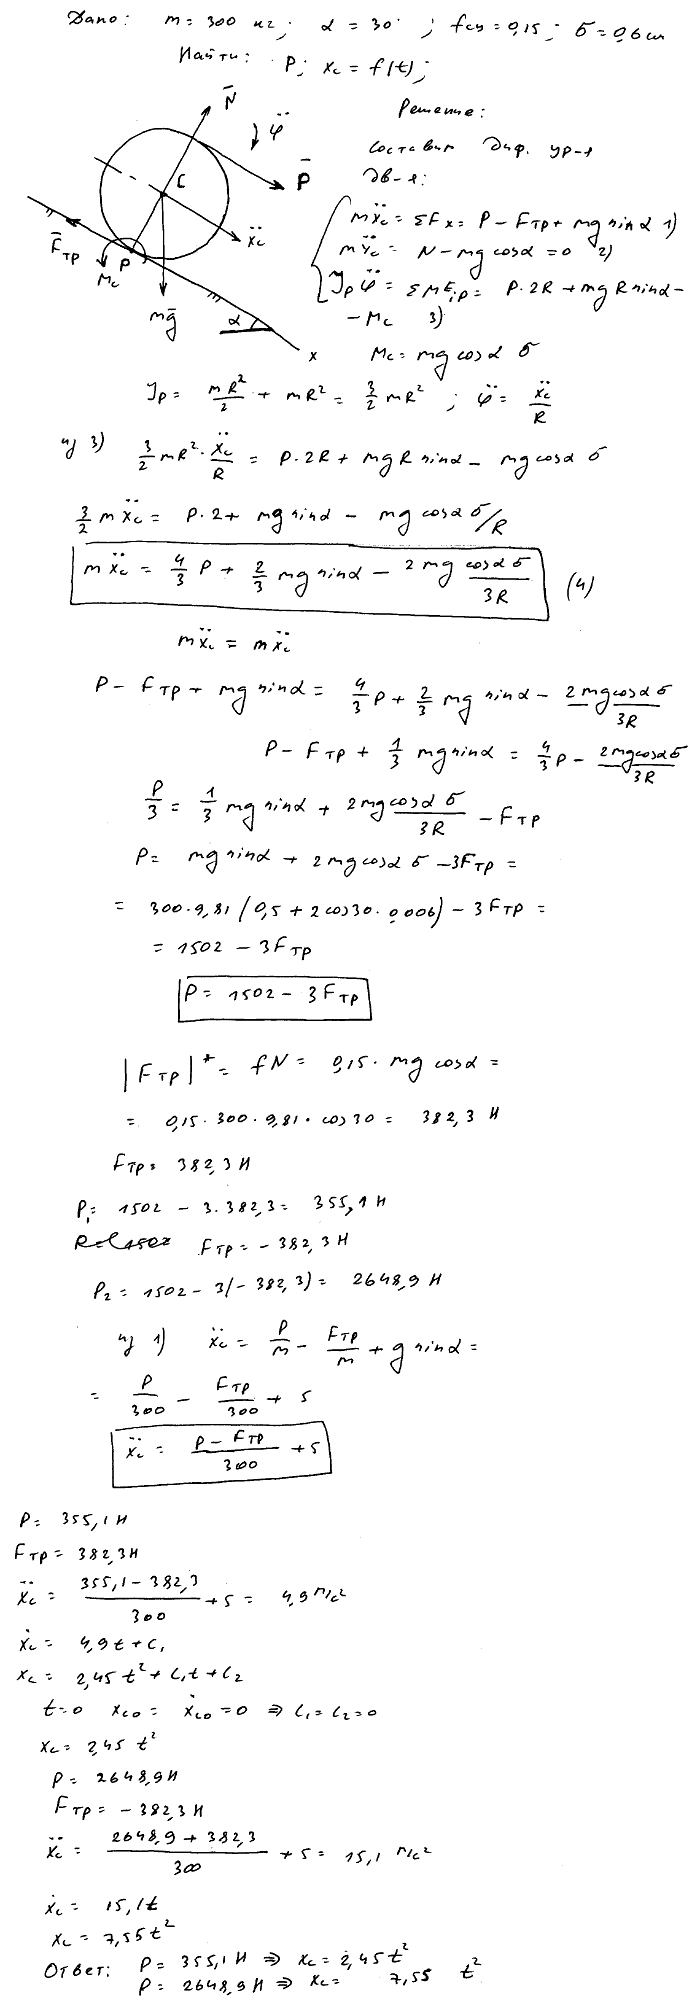 Дано: m = 300 кг; α = 30°; fсц = 0,15; б = 0,6 см
Найти: P; xc = f(t);
Решение:
составим диф. ур-я
дв-я:
mẍc = ΣFx = P − Fтр + mg sin α 1)
mÿc = N − mg cos α = 0 2)
Jp φ̈ = ΣMEip = P·2R + mgR sin α −
− Mc 3)
N̄
φ̈
P̄
C
ẍc
F̄тр
P
Mc
mḡ
α
x
Mc = mg cos α б
Jp = mR²/2 + mR² = 3/2 mR² ; φ̈ = ẍc/R
из 3) 3/2 mR² · ẍc/R = P·2R + mgR sin α − mg cos α б
3/2 mẍc = P·2 + mg sin α − mg cos α б/R
mẍc = 4/3 P + 2/3 mg sin α − 2mg cos α б/3R (4)
mẍc = mẍc
P − Fтр + mg sin α = 4/3 P + 2/3 mg sin α − 2mg cos α б/3R
P − Fтр + 1/3 mg sin α = 4/3 P − 2mg cos α б/3R
P/3 = 1/3 mg sin α + 2mg cos α б/3R − Fтр
P = mg sin α + 2mg cos α б − 3Fтр =
= 300·9,81 (0,5 + 2cos30·0,006) − 3Fтр =
= 1502 − 3Fтр
P = 1502 − 3Fтр
|Fтр|* = fN = 0,15·mg cos α =
= 0,15·300·9,81·cos30 = 382,3 Н
Fтр = 382,3 Н
P₁ = 1502 − 3·382,3 = 355,1 Н
Fтр = −382,3 Н
P₂ = 1502 − 3(−382,3) = 2648,9 Н
из 1) ẍc = P/m − Fтр/m + g sin α =
= P/300 − Fтр/300 + 5
ẍc = P − Fтр/300 + 5
P = 355,1 Н
Fтр = 382,3 Н
ẍc = 355,1 − 382,3/300 + 5 = 4,9 м/с²
ẋc = 4,9t + C₁
xc = 2,45t² + C₁t + C₂
t=0 xco = ẋco = 0 ⇒ C₁ = C₂ = 0
xc = 2,45 t²
P = 2648,9 Н
Fтр = −382,3 Н
ẍc = 2648,9 + 382,3/300 + 5 = 15,1 м/с²
ẋc = 15,1t
xc = 7,55t²
Ответ: P = 355,1 Н ⇒ xc = 2,45t²
P = 2648,9 Н ⇒ xc = 7,55 t²